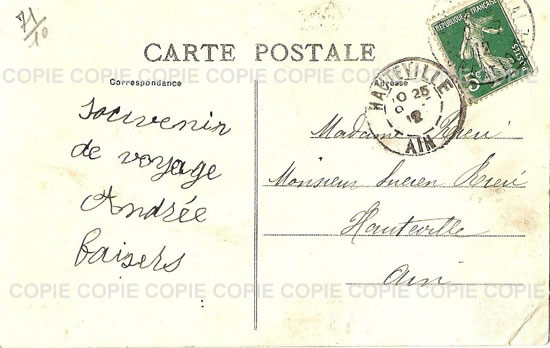 71/10
CARTE POSTALE
Correspondance
Adresse
REPUBLIQUE FRANÇAISE
POSTES
5
HAUTEVILLE
10 25
12
AIN
COPIE COPIE COPIE COPIE COPIE COPIE
souvenir
de voyage
Andrée
baisers
Madame
Monsieur Lucien
Hauteville
Ain
COPIE COPIE COPIE COPIE COPIE COPIE